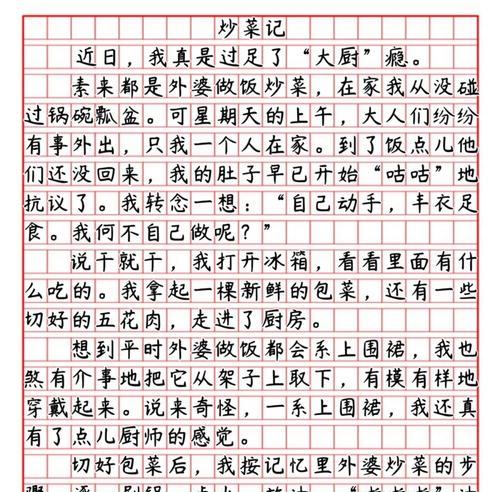 炒菜记
近日，我真是过足了“大厨”瘾。
素来都是外婆做饭炒菜，在家我从没碰
过锅碗瓢盆。可星期天的上午，大人们纷纷
有事外出，只我一个人在家。到了饭点儿他
们还没回来，我的肚子早已开始“咕咕”地
抗议了。我转念一想：“自己动手，丰衣足
食。我何不自己做呢？”
说干就干，我打开冰箱，看看里面有什
么吃的。我拿起一棵新鲜的包菜，还有一些
切好的五花肉，走进了厨房。
想到平时外婆做饭都会系上围裙，我也
煞有介事地把它从架子上取下，有模有样地
穿戴起来。说来奇怪，一系上围裙，我还真
有了点儿厨师的感觉。
切好包菜后，我按记忆里外婆炒菜的步